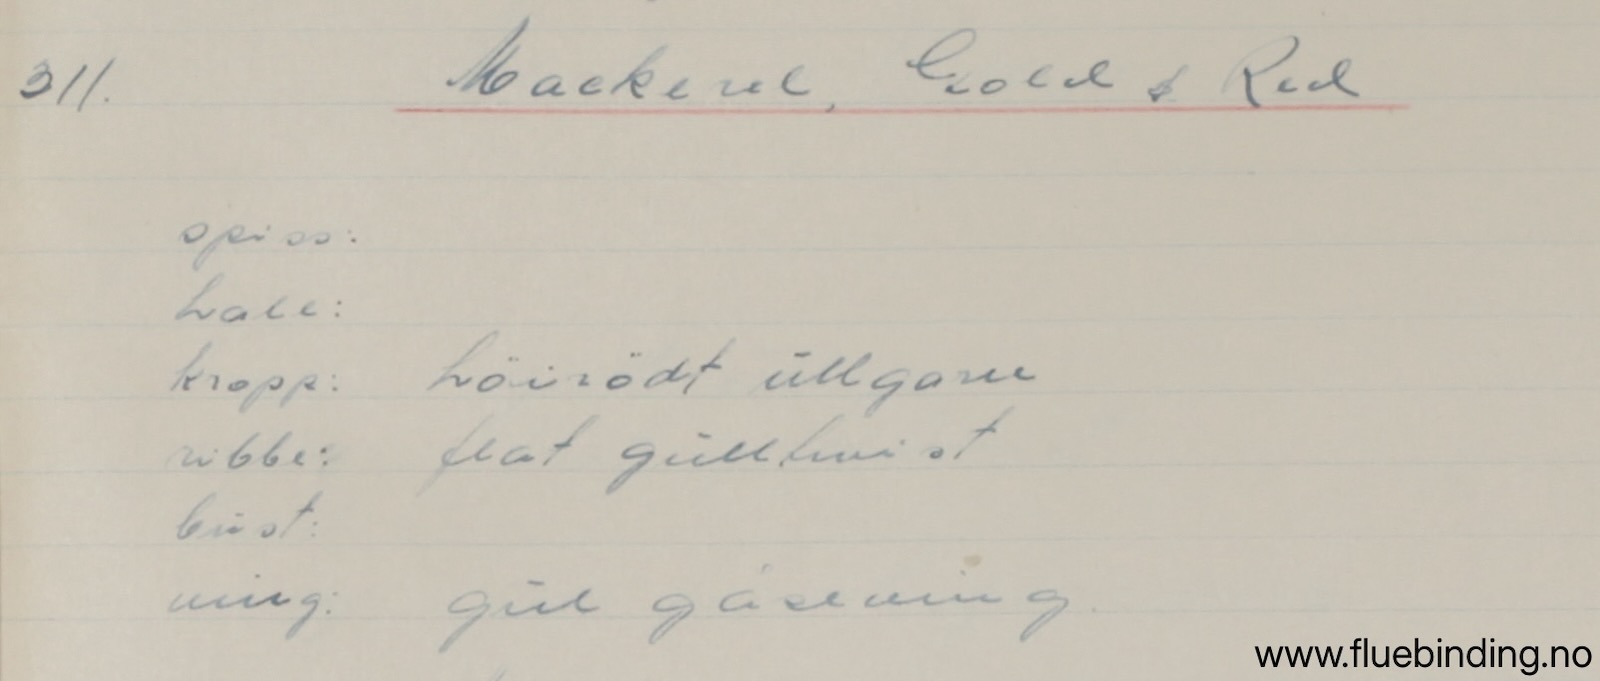 311. Mackerel, Gold & Red
spiss:
hale:
kropp: höirödt ūllgarn
ribbe: flat gūlltwist
būst:
ving: gūl gåseving.
www.fluebinding.no